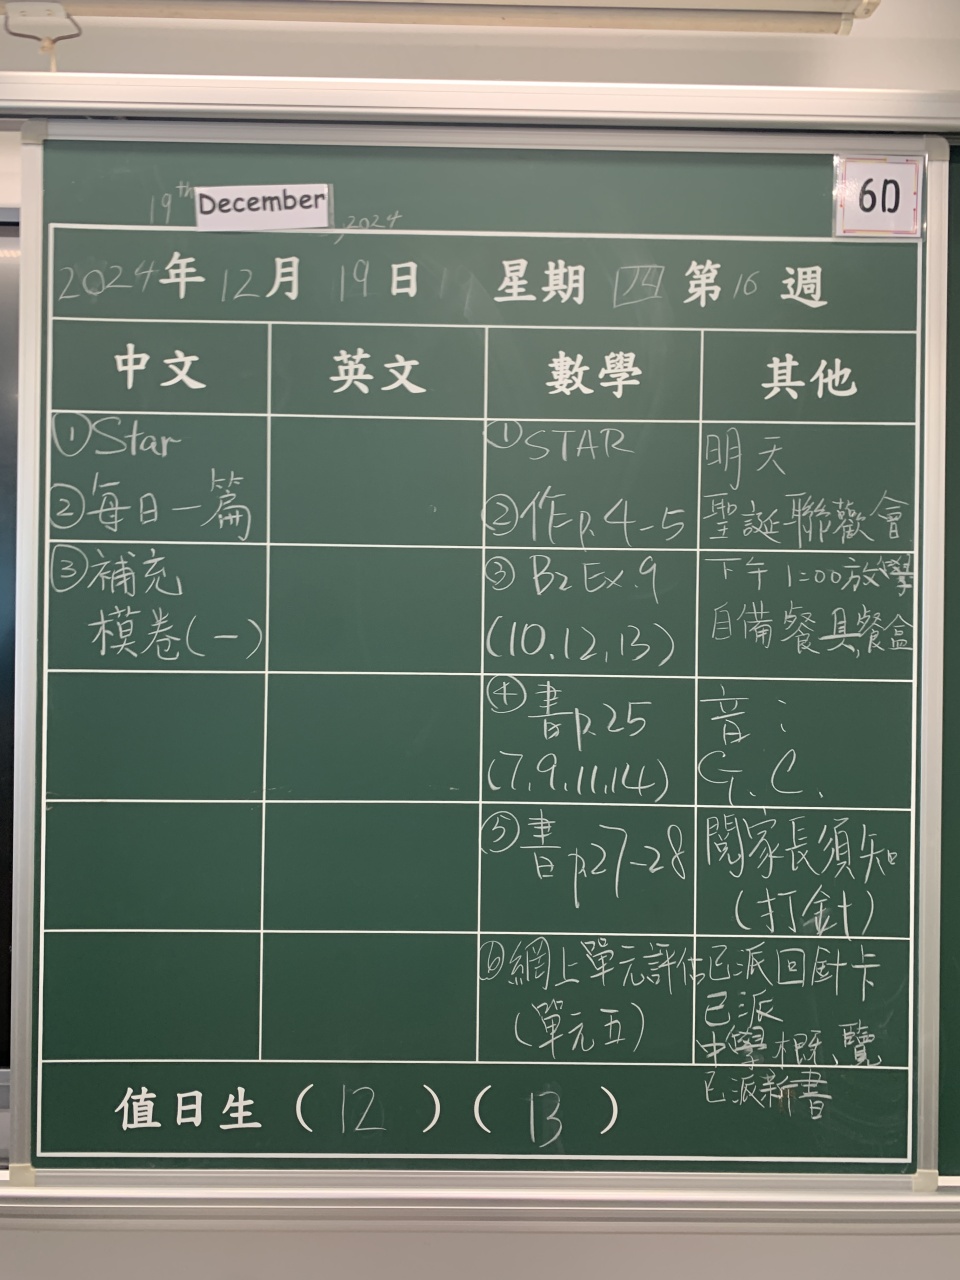 19th December, 2024
6D
2024年12月19日 星期四 第16週
中文 英文 數學 其他
①Star
②每日一篇
③補充
模卷(一)
①STAR
②作p.4-5
③B2 Ex.9
(10,12,13)
④書p.25
(7,9,11,14)
⑤書p.27-28
⑥網上單元評估
(單元五)
明天
聖誕聯歡會
下午1:00放學
自備餐具,餐盒
音:
G.C.
閱家長須知
(打針)
已派回針卡
已派
中學概覽
已派新書
值日生(12)(13)